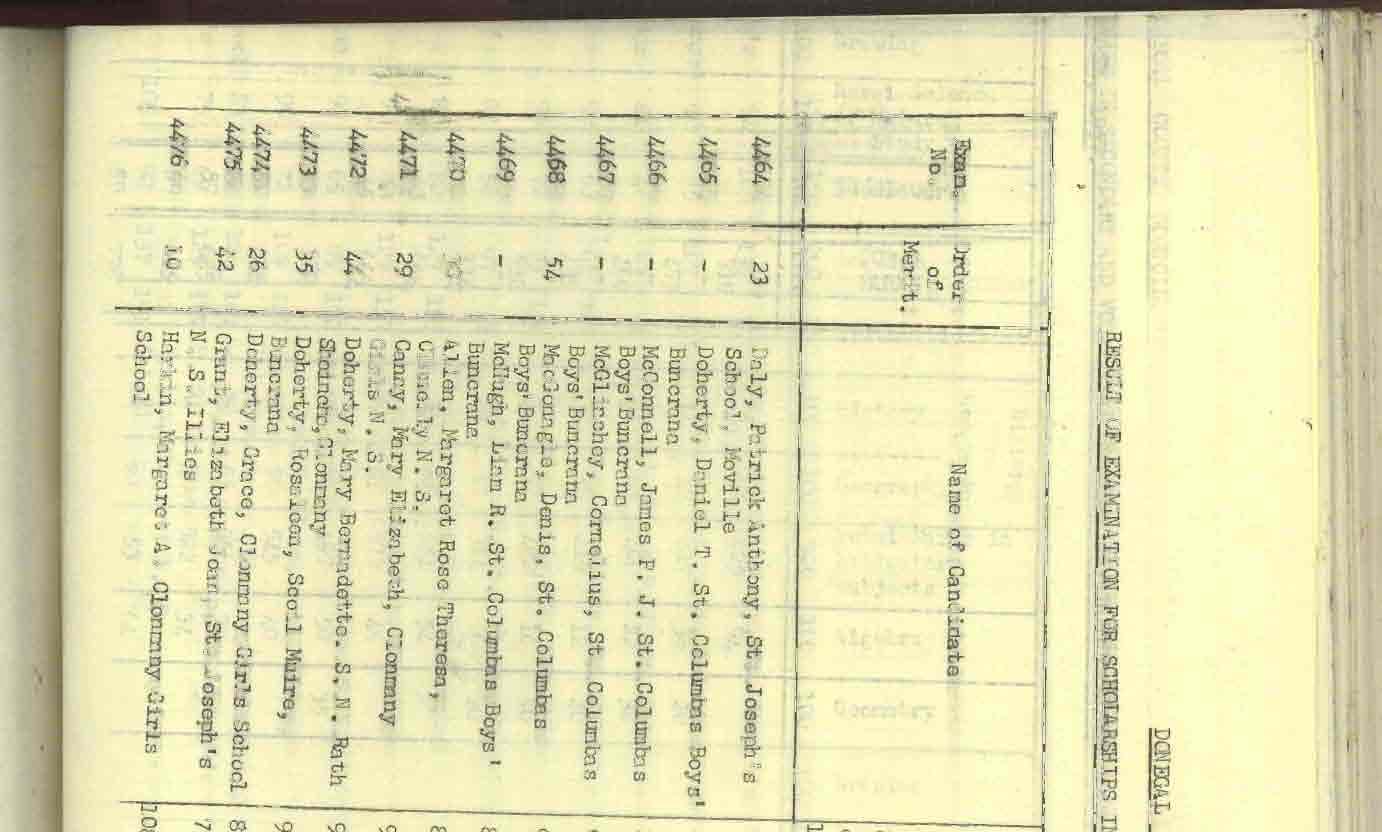 DONEGAL
RESULT OF EXAMINATION FOR SCHOLARSHIPS IN
Exam. No. Order of Merit. Name of Candidate
4464 23 Daly, Patrick Anthony, St. Joseph's
School, Moville
4465 - Doherty, Daniel T. St. Columbas Boys'
Buncrana
4466 - McConnell, James P. J. St. Columbas
Boys' Buncrana
4467 - McGlinchey, Cornelius, St. Columbas
Boys' Buncrana
4468 54 MacGonagle, Denis, St. Columbas
Boys' Buncrana
4469 - McHugh, Liam R. St. Columbas Boys'
Buncrana
4470 Allen, Margaret Rose Theresa,
N. S.
4471 29 Canry, Mary Elizabeth, Clonmany
Girls N. S.
4472 44 Doherty, Mary Bernadette. S. N. Rath
Shoincho, Clonmany
4473 35 Doherty, Rosaleen, Scoil Muire,
Buncrana
4474 26 Donerty, Grace, Clonmany Girls School
4475 42 Grant, Elizabeth Joan, St. Joseph's
N. S.
4476 10. Harkin, Margaret A. Clonmany Girls
School